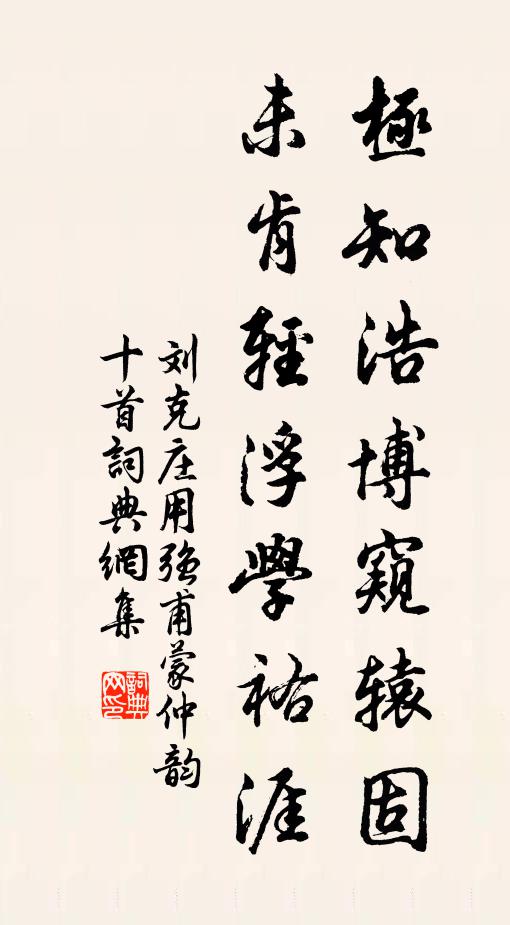 極知浩博窺辕固
未肯輕浮學祐涯
刘克庄用強甫蒙仲韵
十首詞典網集
詞典网印